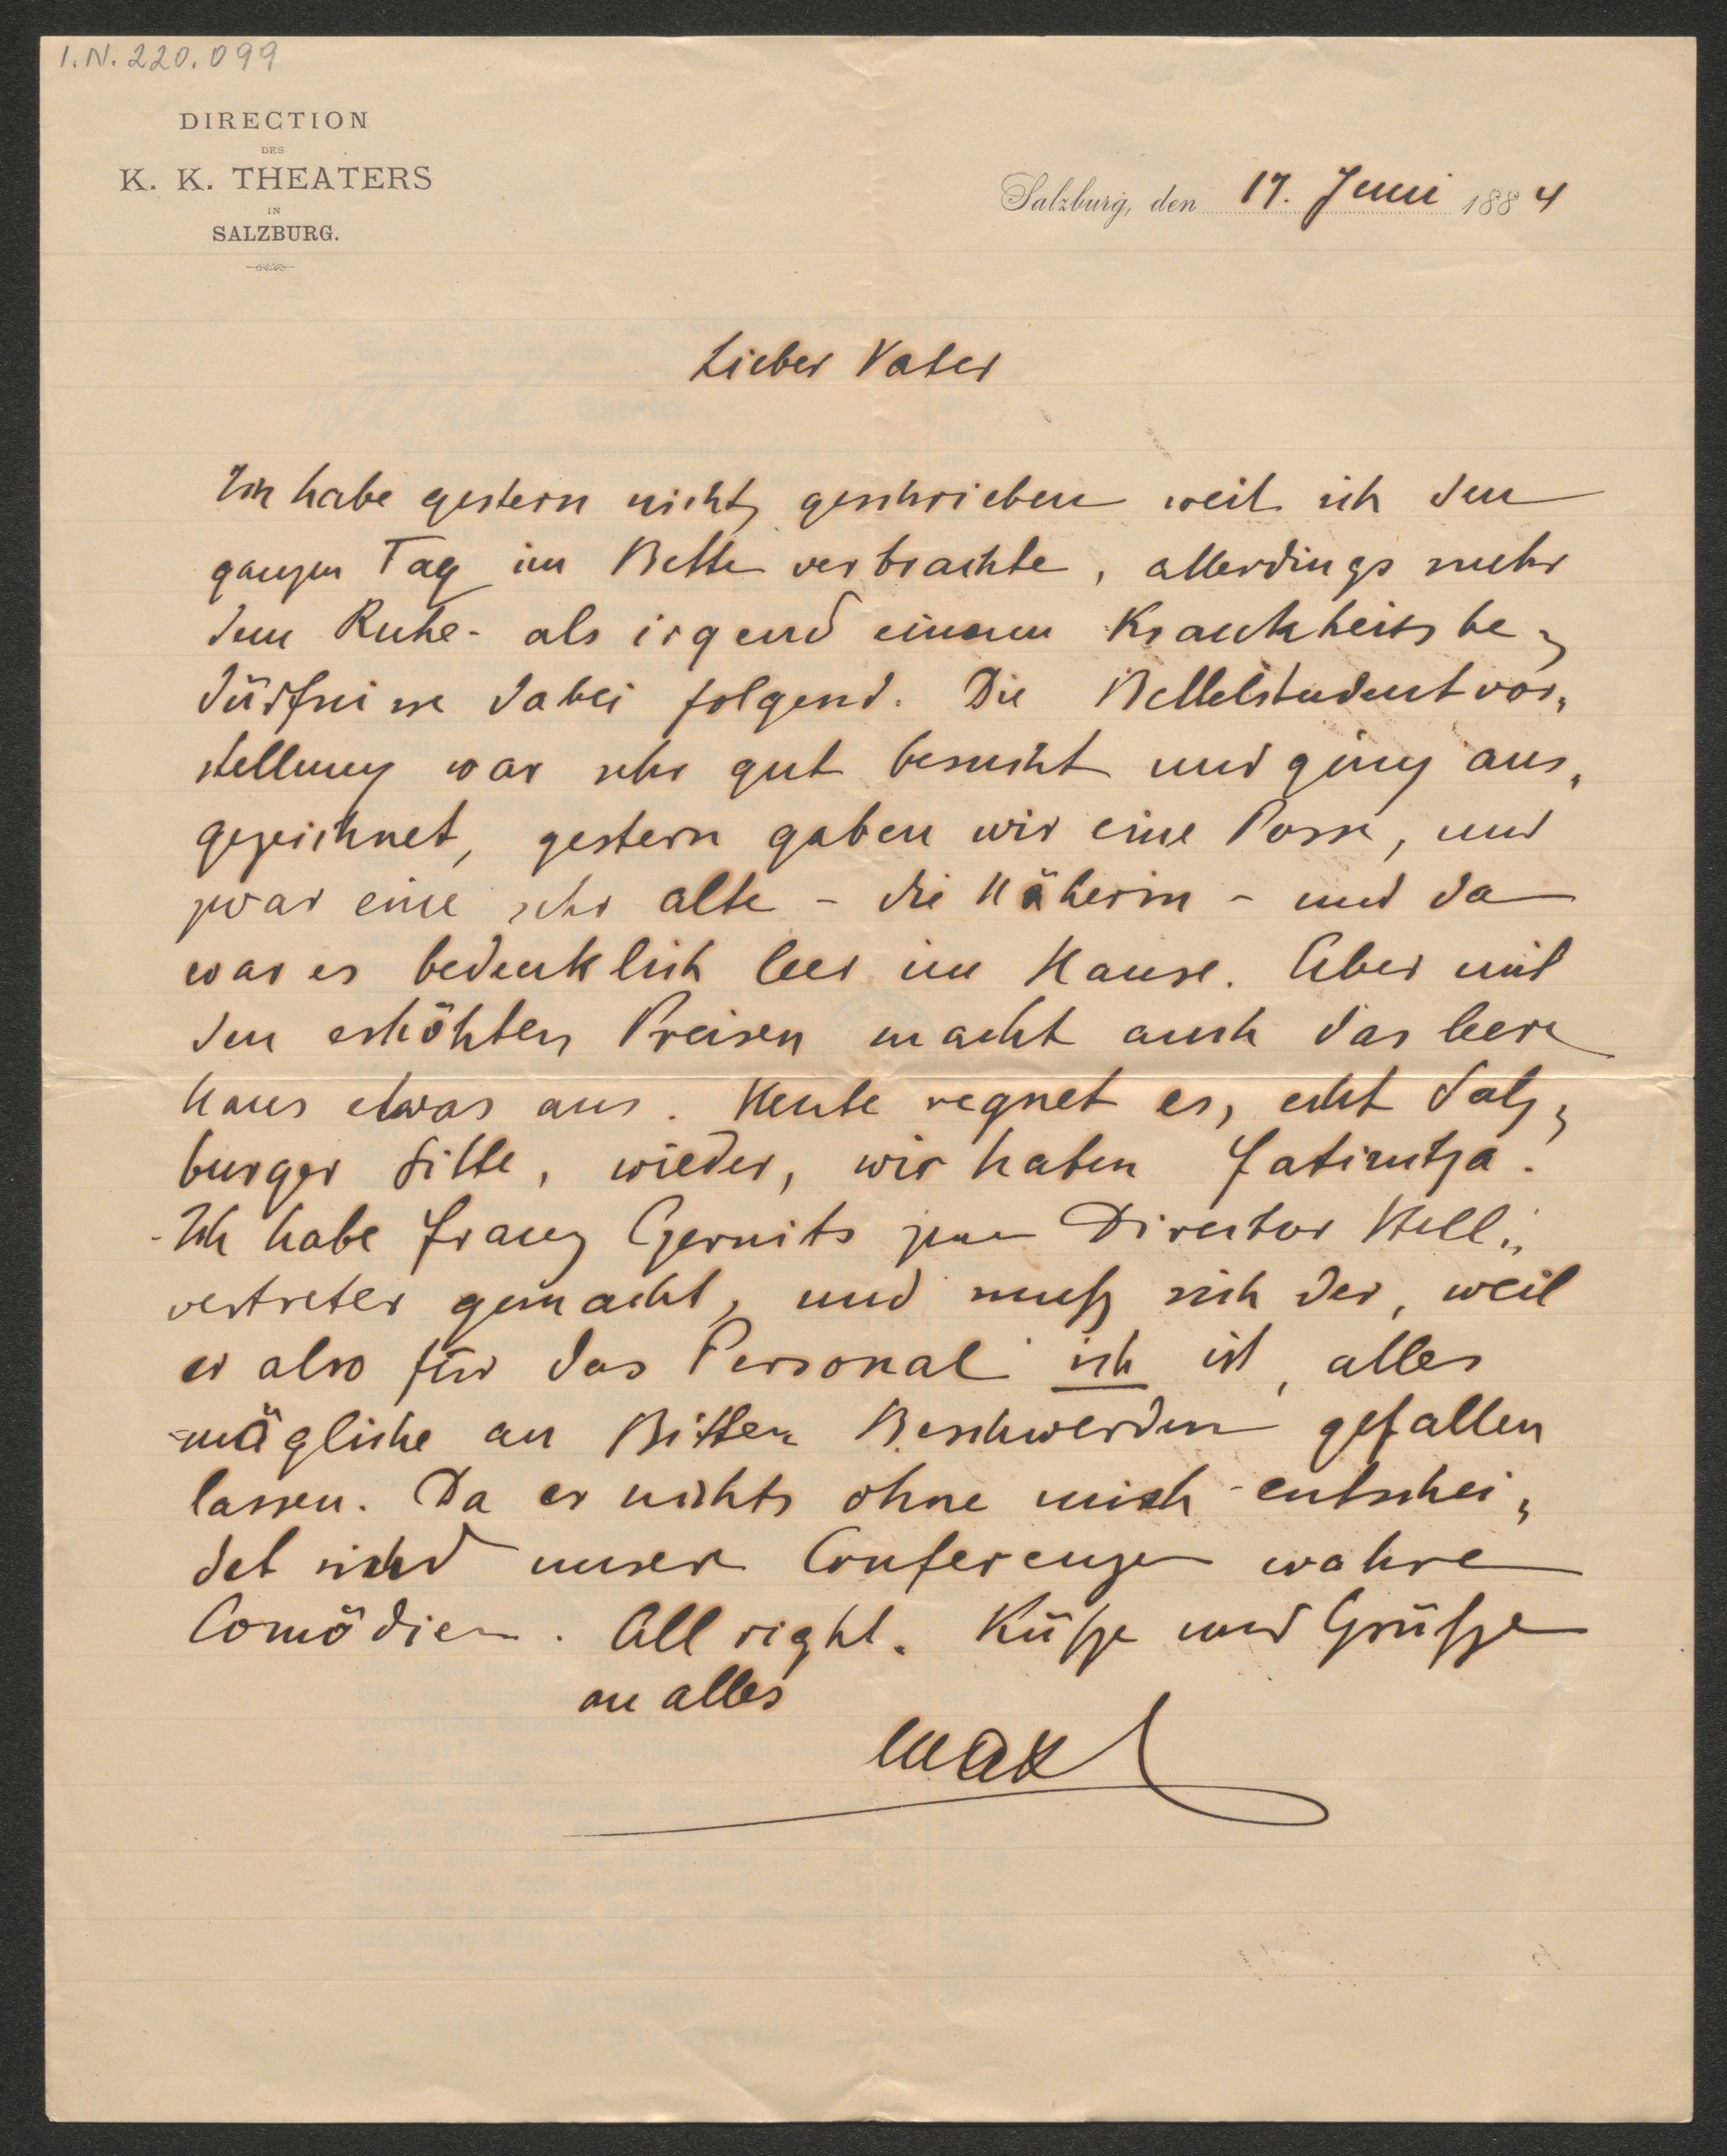 I.N. 220.099
DIRECTION
DES
K. K. THEATERS
IN
SALZBURG.
Salzburg, den 17. Juni 1884
Lieber Vater
Ich habe gestern nicht geschrieben weil ich den
ganzen Tag im Bette verbrachte, allerdings mehr
dem Ruhe- als irgend einem Krankheitsbe-
dürfnisse dabei folgend. Die Bettelstudentvor-
stellung war sehr gut besucht und ging aus-
gezeichnet, gestern gaben wir eine Posse, und
zwar eine sehr alte - die Näherin - und da
war es bedenklich leer im Hause. Aber mit
den erhöhten Preisen macht auch das leere
Haus etwas aus. Heute regnet es, echt Salz-
burger Sitte, wieder, wir haben Fatinitza.
Ich habe Franz zum Director Stell-
vertreter gemacht, und muß sich der, weil
er also für das Personal ich ist, alles
mögliche an Bitten Beschwerden gefallen
lassen. Da er nichts ohne mich entschei-
det sind unsere Conferenzen wahre
Comödien. All right. Küße und Grüße
an alles
Max